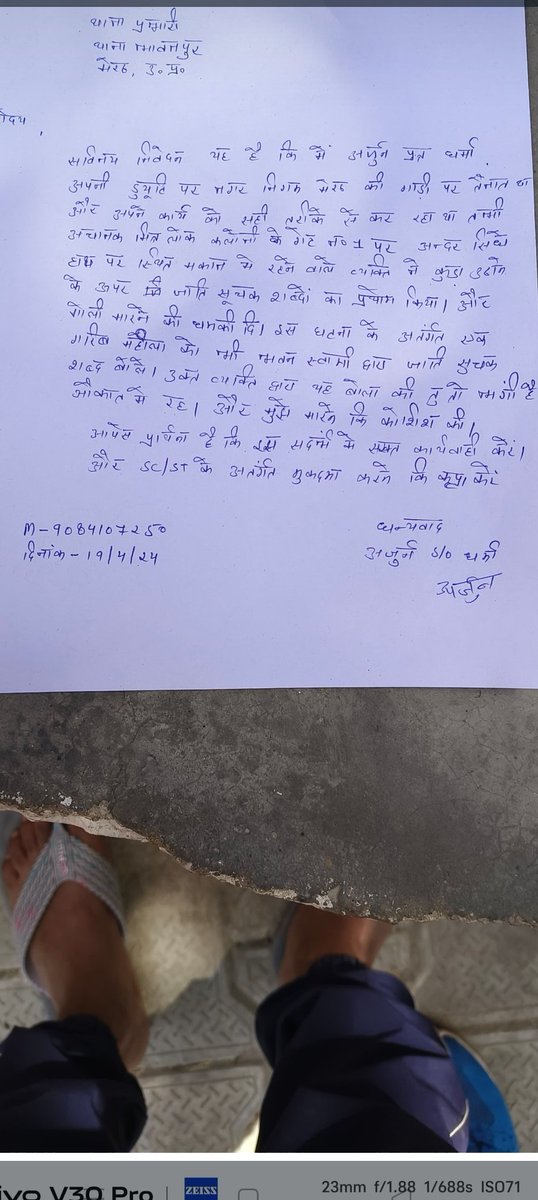 थाना प्रभारी
थाना भावनपुर
मेरठ, उ० प्र०
होदय,
सविनय निवेदन यह है कि में अर्जुन पुत्र धर्मा
अपनी डुयूटि पर नगर निगम मेरठ की गाडी पर तैनात था
और अपने कार्य को सही तरीके से कर रहा था तभी
अचानक मित्तलोक कलोनी के गेट न० 1 पर अन्दर सिधे
हाथ पर स्थित मकान मे रहने वाले व्यक्ति ने कुडा उठाने
के ऊपर जाति सूचक शब्दों का प्रयोग किया। और
गोली मारने की धमकी दि। इस घटना के अतंर्गत एक
गरिब महीला को भी भवन स्वामी द्वारा जाति सुचक
शब्द बोले। उक्त व्यक्ति द्वारा यह बोला की तु तो भगी है
औकात मे रह। और मुझे मारने कि कोशिश की।
आपसे प्रार्थना है कि इस सदर्भ मे सख्त कार्यवाही करें।
और SC/ST के अतंर्गत मुकदमा करने कि कृपा करें
धन्यवाद
M-9084107250
अर्जुन S/O धर्मा
दिनांक - 19/4/24
अर्जुन
ivo V30 Pro | ZEISS
23mm f/1.88 1/688s ISO71